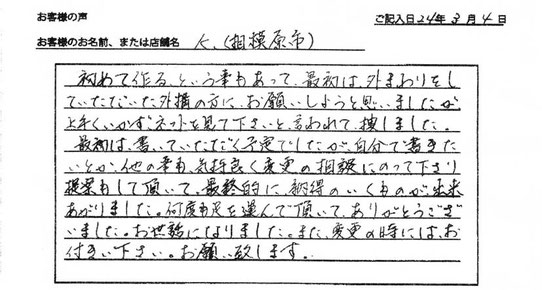 お客様の声
ご記入日24年3月4日
お客様のお名前、または店舗名 K.(相模原市)
初めて作る、という事もあって、最初は、外まわりをし
ていただいた外構の方に、お願いしようと思いましたが
上手くいかず、ネットを見て下さいと、言われて、捜しました。
最初は、書いていただく予定でしたが、自分で書きた
いとか、他の事も、気持良く変更の相談にのって下さり
提案もして頂いて、最終的に納得のいくものが出来
あがりました。何度も足を運んで頂いて、ありがとうござ
いました。お世話になりました。また、変更の時には、お
付き合い下さい。お願い致します。